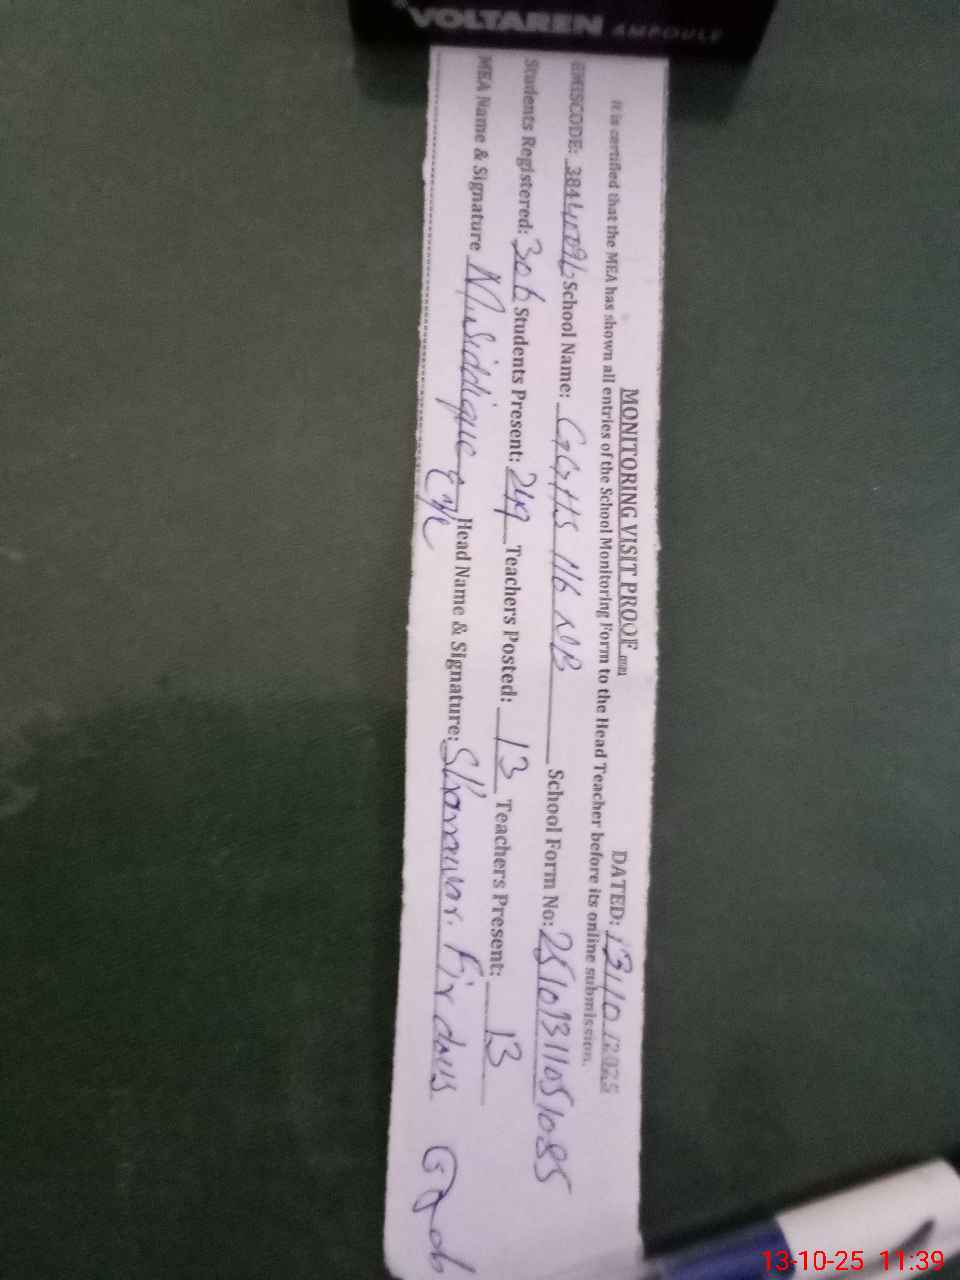 VOLTAREN AMPOULE
MONITORING VISIT PROOF
DATED: 13/10/2025
It is certified that the MEA has shown all entries of the School Monitoring Form to the Head Teacher before its online submission.
EMISCODE: 38440096 School Name: GGHS 116 NB School Form No: 25101311051085
Students Registered: 306 Students Present: 249 Teachers Posted: 13 Teachers Present: 13
MEA Name & Signature M.Siddique Head Name & Signature: Firdaus
13-10-25 11:39